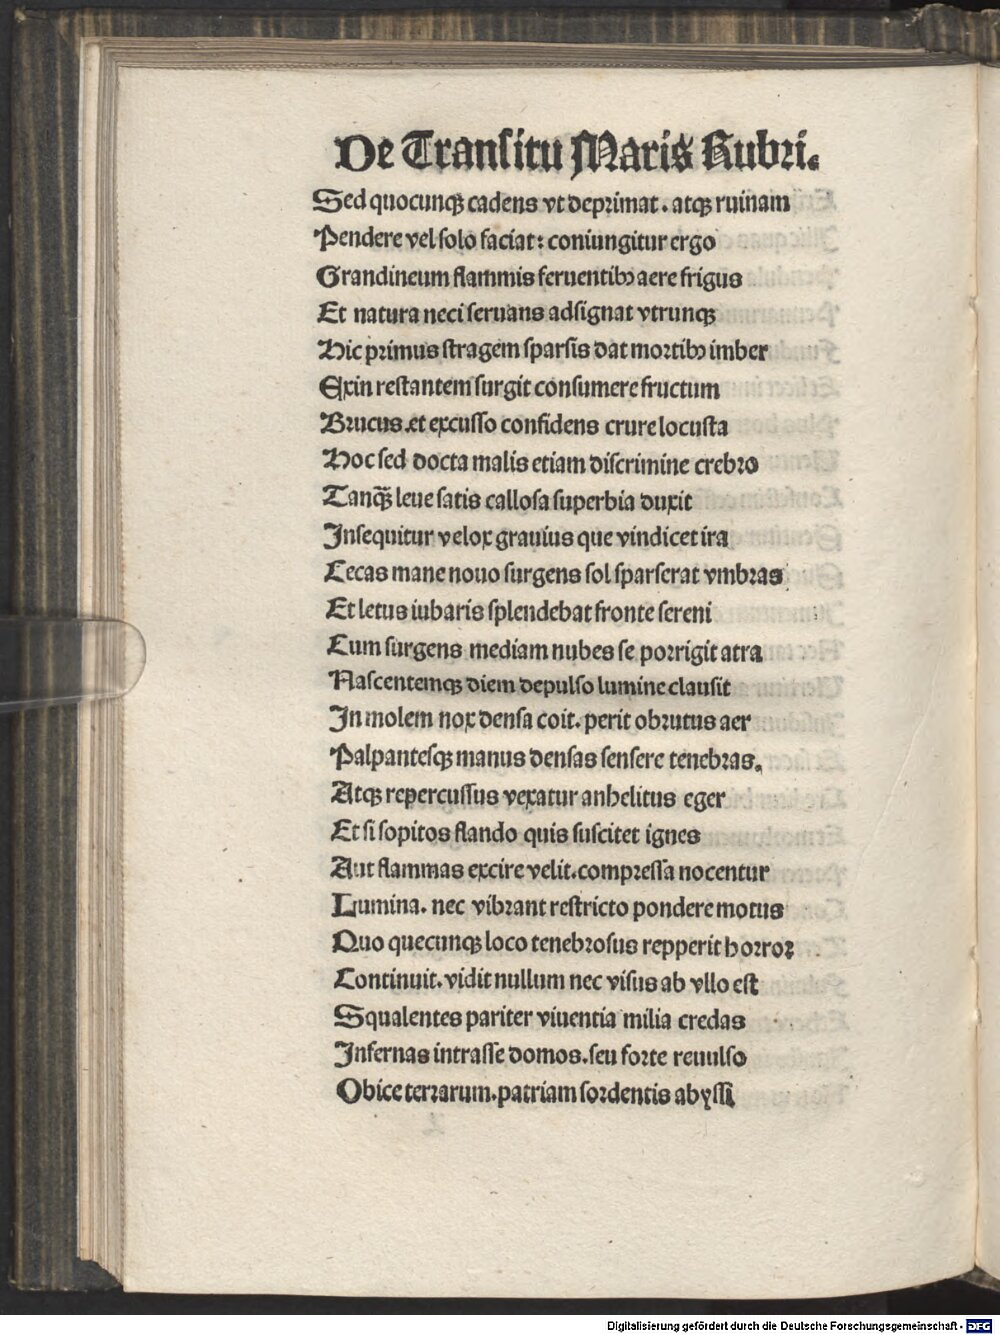 De Transitu Maris Rubri.
Sed quocunqꝫ cadens vt deprimat . atqꝫ ruinam
Pendere vel solo faciat : coniungitur ergo
Grandineum flammis feruentibꝰ aere frigus
Et natura neci seruans adsignat vtrunqꝫ
Hic primus stragem sparsis dat mortibꝰ imber
Exin restantem surgit consumere fructum
Brucus .et excusso confidens crure locusta
Hoc sed docta malis etiam discrimine crebro
Tanqꝫ̃ leue satis callosa superbia duxit
Insequitur velox grauius que vindicet ira
Cecas mane nouo surgens sol sparserat vmbras
Et letus iubaris splendebat fronte sereni
Cum surgens mediam nubes se porrigit atra
Nascentemqꝫ diem depulso lumine clausit
In molem nox densa coit. perit obrutus aer
Palpantesqꝫ manus densas sensere tenebras.
Atqꝫ repercussus vexatur anhelitus eger
Et si sopitos flando quis suscitet ignes
Aut flammas excire velit.compressa nocentur
Lumina. nec vibrant restricto pondere motus
Quo quecunqꝫ loco tenebrosus repperit horror
Continuit. vidit nullum nec visus ab vllo est
Squalentes pariter viuentia milia credas
Infernas intrasse domos.seu forte reuulso
Obice terrarum.patriam sordentis abyssi
Digitalisierung gefördert durch die Deutsche Forschungsgemeinschaft - DFG